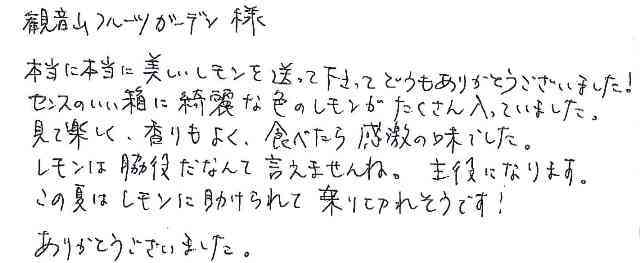 観音山フルーツガーデン 様
本当に本当に美しいレモンを送って下さってどうもありがとうございました!
センスのいい箱に綺麗な色のレモンがたくさん入っていました。
見て楽しく、香りもよく、食べたら感激の味でした。
レモンは脇役だなんて言えませんね。 主役になります。
この夏はレモンに助けられて乗り切れそうです!
ありがとうございました。